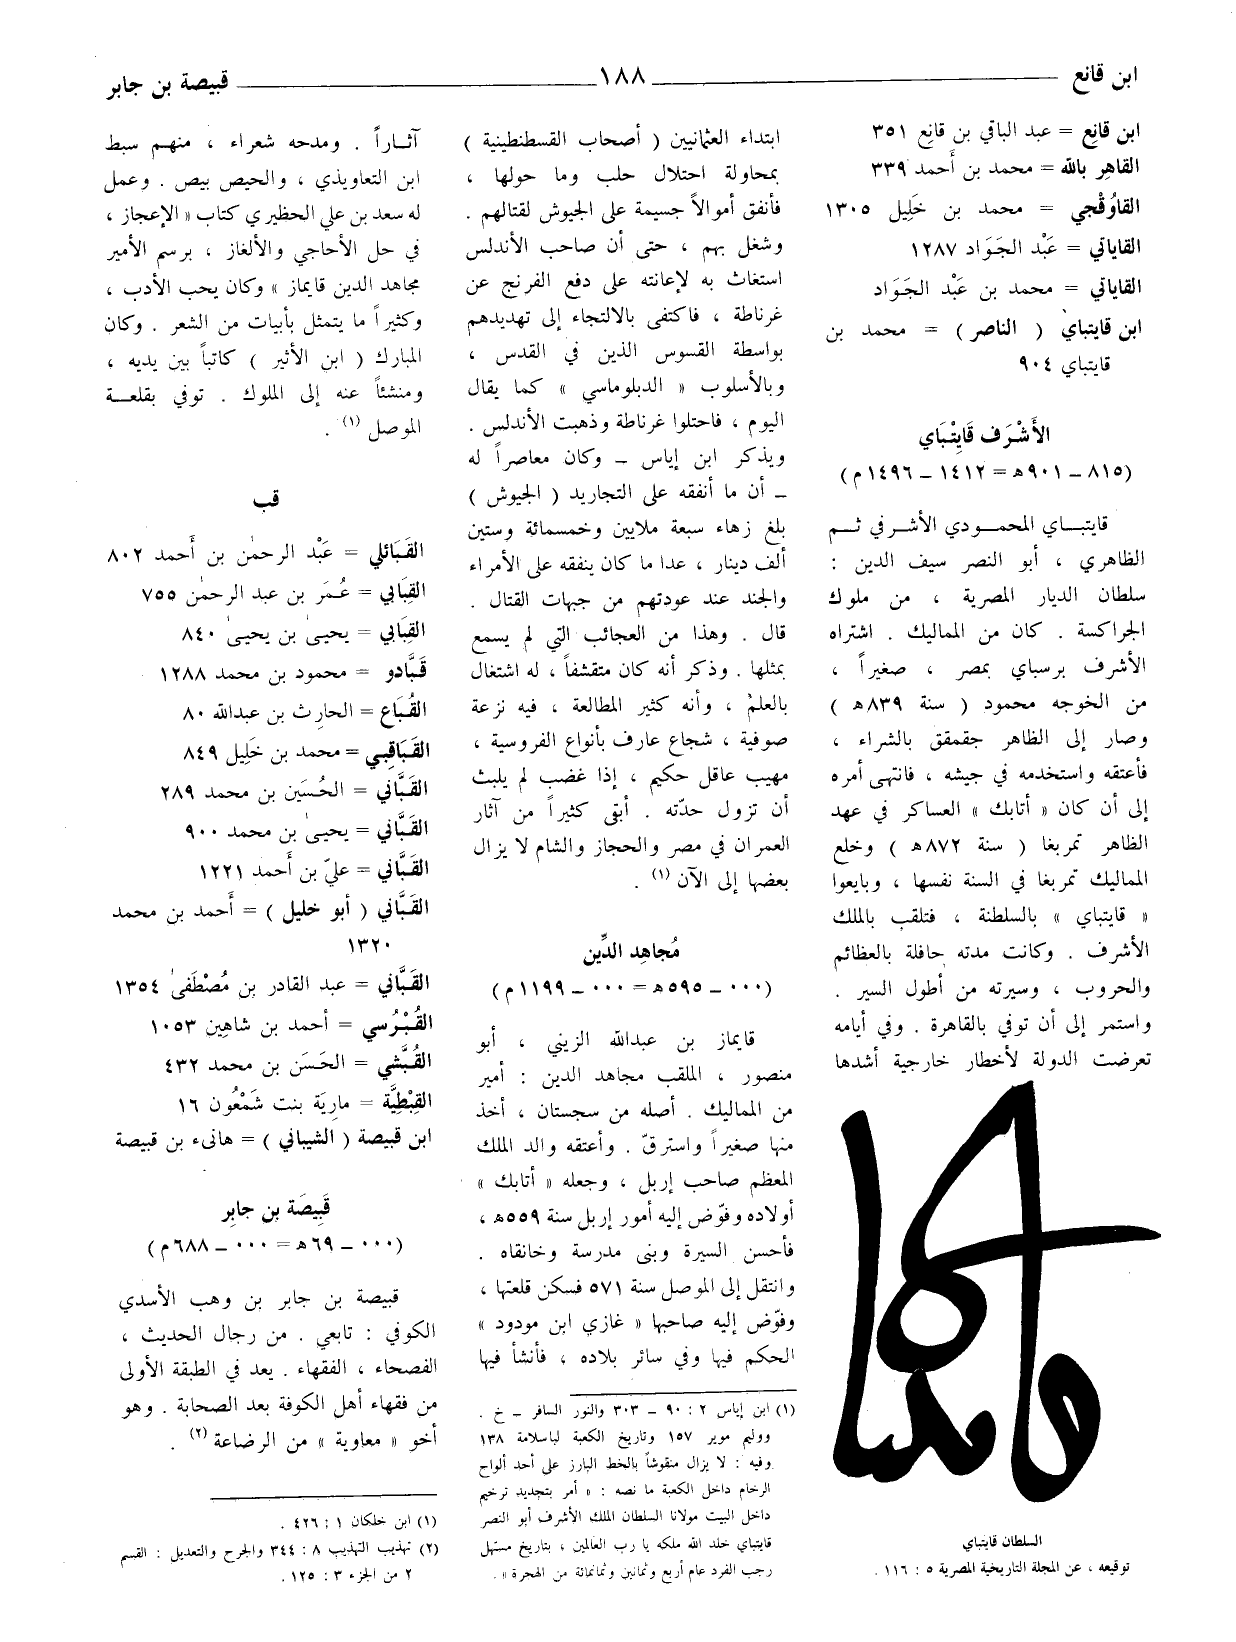 ابن قانع
١٨٨
قبيصة بن جابر
ابن قانِع = عبد الباقي بن قانِع ٣٥١
القاهر بالله = محمد بن أَحمد ٣٣٩
القاوُقْجي = محمد بن خَلِيل ١٣٠٥
القاياتي = عَبْد الجَوَاد ١٢٨٧
القاياتي = محمد بن عَبْد الجَوَاد
ابن قايتباي ( الناصر ) = محمد بن
قايتباي ٩٠٤
الأَشْرَف قَايِتْبَاي
(٨١٥ ــ ٩٠١ هـ = ١٤١٢ ــ ١٤٩٦ م)
قايتباي المحمودي الأشرفي ثم
الظاهري ، أبو النصر سيف الدين :
سلطان الديار المصرية ، من ملوك
الجراكسة . كان من المماليك . اشتراه
الأشرف برسباي بمصر ، صغيراً ،
من الخوجه محمود ( سنة ٨٣٩ هـ )
وصار إلى الظاهر جقمقق بالشراء ،
فأعتقه واستخدمه في جيشه ، فانتهى أمره
إلى أن كان « أتابك » العساكر في عهد
الظاهر تمربغا ( سنة ٨٧٢ هـ ) وخلع
المماليك تمربغا في السنة نفسها ، وبايعوا
« قايتباي » بالسلطنة ، فتلقب بالملك
الأشرف . وكانت مدته حافلة بالعظائم
والحروب ، وسيرته من أطول السير .
واستمر إلى أن توفي بالقاهرة . وفي أيامه
تعرضت الدولة لأخطار خارجية أشدها
السلطان قايتباي
توقيعه ، عن المجلة التاريخية المصرية ٥ : ١١٦ .
ابتداء العثمانيين ( أصحاب القسطنطينية )
بمحاولة احتلال حلب وما حولها ،
فأنفق أموالاً جسيمة على الجيوش لقتالهم .
وشغل بهم ، حتى أن صاحب الأندلس
استغاث به لإعانته على دفع الفرنج عن
غرناطة ، فاكتفى بالالتجاء إلى تهديدهم
بواسطة القسوس الذين في القدس ،
وبالأسلوب « الدبلوماسي » كما يقال
اليوم ، فاحتلوا غرناطة وذهبت الأندلس .
ويذكر ابن إياس ــ وكان معاصراً له
ــ أن ما أنفقه على التجاريد ( الجيوش )
بلغ زهاء سبعة ملايين وخمسمائة وستين
ألف دينار ، عدا ما كان ينفقه على الأمراء
والجند عند عودتهم من جبهات القتال .
قال . وهذا من العجائب التي لم يسمع
بمثلها . وذكر أنه كان متقشفاً ، له اشتغال
بالعلم ، وأنه كثير المطالعة ، فيه نزعة
صوفية ، شجاع عارف بأنواع الفروسية ،
مهيب عاقل حكيم ، إذا غضب لم يلبث
أن تزول حدّته . أبقى كثيراً من آثار
العمران في مصر والحجاز والشام لا يزال
بعضها إلى الآن (١) .
مُجاهِد الدِّين
(٠٠٠ ــ ٥٩٥ هـ = ٠٠٠ ــ ١١٩٩ م)
قايماز بن عبدالله الزيني ، أبو
منصور ، الملقب مجاهد الدين : أمير
من المماليك . أصله من سجستان ، أخذ
منها صغيراً واسترقّ . وأعتقه والد الملك
المعظم صاحب إربل ، وجعله « أتابك »
أولاده وفوّض إليه أمور إربل سنة ٥٥٩ هـ ،
فأحسن السيرة وبنى مدرسة وخانقاه .
وانتقل إلى الموصل سنة ٥٧١ فسكن قلعتها ،
وفوّض إليه صاحبها « غازي ابن مودود »
الحكم فيها وفي سائر بلاده ، فأنشأ فيها
(١) ابن إياس ٢ : ٩٠ ــ ٣٠٣ والنور السافر ــ خ .
ووليم موير ١٥٧ وتاريخ الكعبة لباسلامة ١٣٨
وفيه : لا يزال منقوشاً بالخط البارز على أحد ألواح
الرخام داخل الكعبة ما نصه : « أمر بتجديد ترخيم
داخل البيت مولانا السلطان الملك الأشرف أبو النصر
قايتباي خلد الله ملكه يا رب العالمين ، بتاريخ مستهل
رجب الفرد عام أربع وثمانين وثمانمائة من الهجرة » .
آثاراً . ومدحه شعراء ، منهم سبط
ابن التعاويذي ، والحيص بيص . وعمل
له سعد بن علي الحظيري كتاب « الإعجاز ،
في حل الأحاجي والألغاز ، برسم الأمير
مجاهد الدين قايماز » وكان يحب الأدب ،
وكثيراً ما يتمثل بأبيات من الشعر . وكان
المبارك ( ابن الأثير ) كاتباً بين يديه ،
ومنشئاً عنه إلى الملوك . توفي بقلعة
الموصل (١) .
قب
القَبَائلي = عَبْد الرحمٰن بن أَحمد ٨٠٢
القِبَابي = عُمَر بن عبد الرحمٰن ٧٥٥
القِبَابي = يحيىٰ بن يحيىٰ ٨٤٠
قَبَّادو = محمود بن محمد ١٢٨٨
القُبَاع = الحارث بن عبدالله ٨٠
القَبَاقِبي = محمد بن خَلِيل ٨٤٩
القَبَّاني = الحُسَين بن محمد ٢٨٩
القَبَّاني = يحيىٰ بن محمد ٩٠٠
القَبَّاني = عليّ بن أَحمد ١٢٢١
القَبَّاني ( أبو خليل ) = أَحمد بن محمد
١٣٢٠
القَبَّاني = عبد القادر بن مُصْطَفىٰ ١٣٥٤
القُبْرُسي = أحمد بن شاهِين ١٠٥٣
القُبَّشي = الحَسَن بن محمد ٤٣٢
القِبْطِيَّة = مارِيَة بنت شَمْعُون ١٦
ابن قبيصة ( الشيباني ) = هانىء بن قبيصة
قَبِيصَة بن جابِر
(٠٠٠ ــ ٦٩ هـ = ٠٠٠ ــ ٦٨٨ م)
قبيصة بن جابر بن وهب الأسدي
الكوفي : تابعي . من رجال الحديث ،
الفصحاء ، الفقهاء . يعد في الطبقة الأولى
من فقهاء أهل الكوفة بعد الصحابة . وهو
أخو « معاوية » من الرضاعة (٢) .
(١) ابن خلكان ١ : ٤٢٦ .
(٢) تهذيب التهذيب ٨ : ٣٤٤ والجرح والتعديل : القسم
٢ من الجزء ٣ : ١٢٥ .